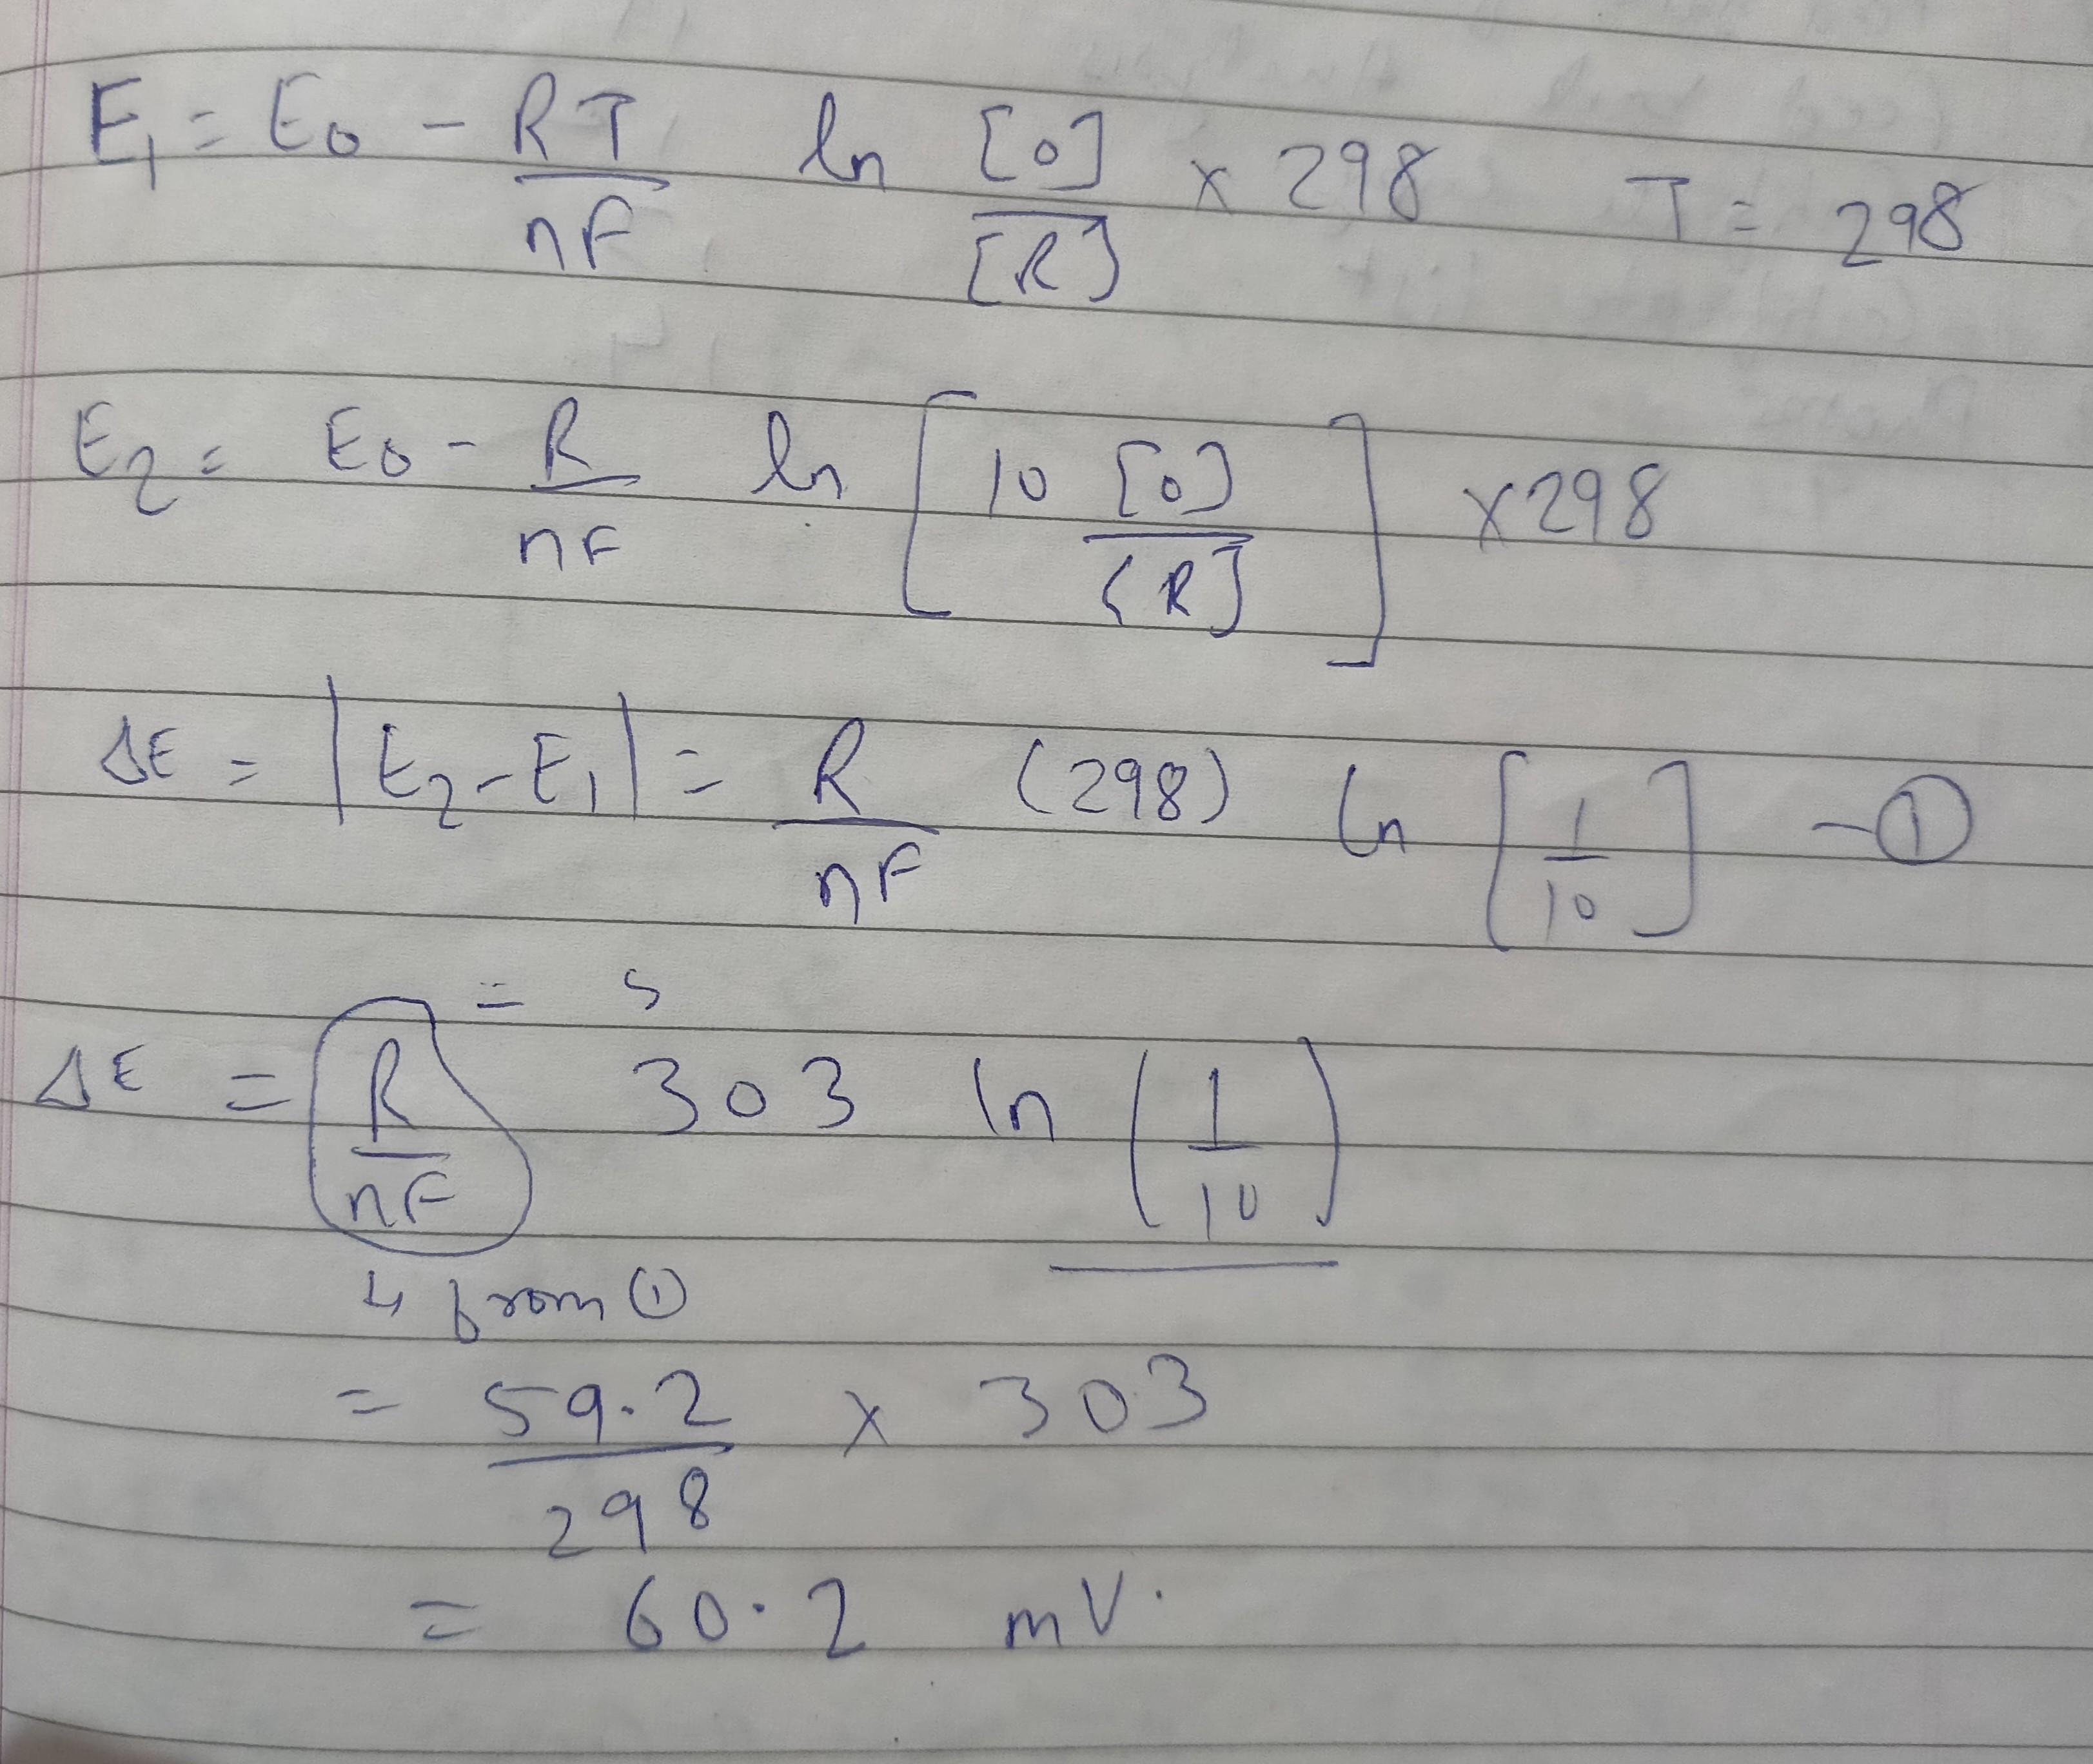 E₁ = E₀ - RT/nF ln [O]/[R] × 298 T = 298
E₂ = E₀ - R/nF ln [10 [O]/[R]] × 298
ΔE = |E₂ - E₁| = R/nF (298) ln [1/10] - ①
= 5
ΔE = R/nF 303 ln (1/10)
↳ from ①
= 59.2/298 × 303
= 60.2 mV.